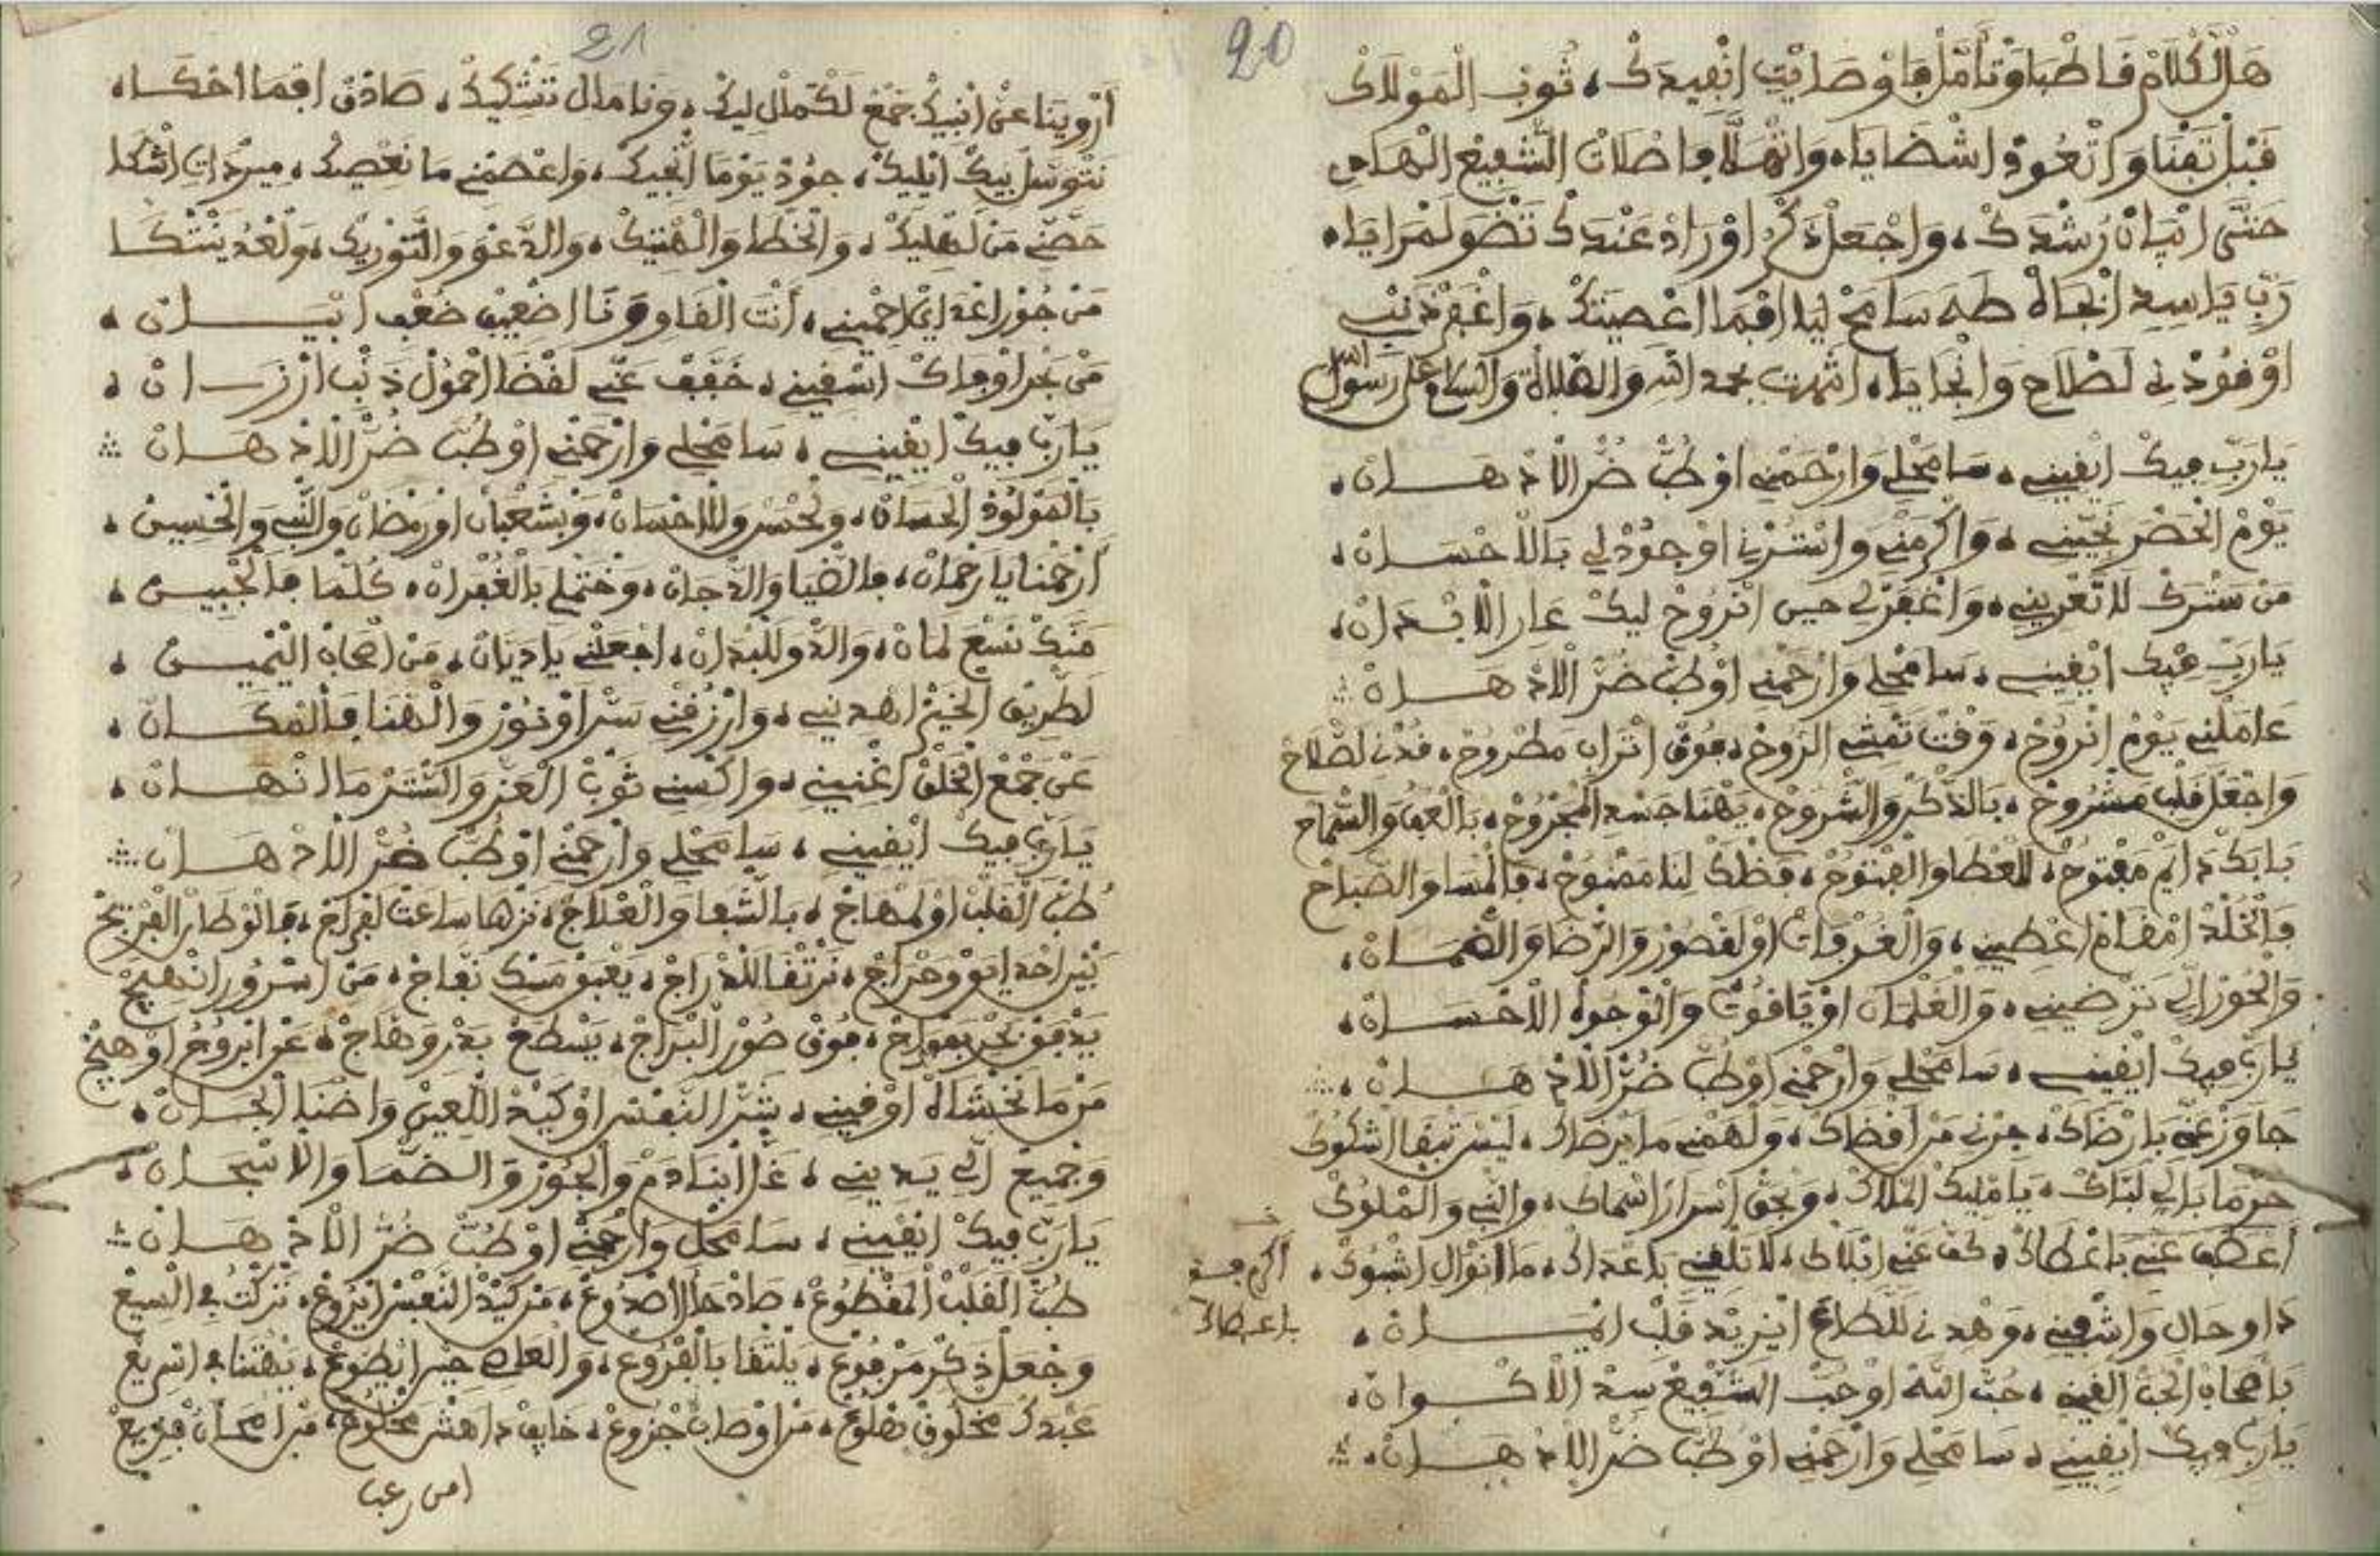 20
هَلْ الْكْلَامْ فَاطْبَاوْ تَأَمَّلْهَا وْصَايْتِ اتْفِيدَكْ ، ثُوبْ الْمَوْلَاكْ
قَبْلْ تَفْنَا وَاتْعُودْ اشْضَايَا ، وَاتْهَلَّا فِاصْلَاتْ الشَّفِيعْ الْهَادِي
حَتَّى اتْبَانْ رُشْدَكْ ، وَاجْعَلْ ذَكْرْ اوْرَادْ عَنْدَكْ تَضْوَ لَمْرَايَا ،
رَبِّ يَا سِيدِ ابْجَاهْ طَهَ سَامَحْ لِيَا افْمَا اعْصِيتَكْ ، وَاغْفَرْ ذَنْبِ
اوْفُودْنِ لَصْلَاحْ وَانْجَايَا ، انتهت بحمد الله والصلاة والسلام على رسول الله
يَارَبِّ فِيكْ ايْقِينِي ، سَامَحْلِي وَارْحَمْنِي اوْطُبْ ضُرَّ الْلَاذْ هَــانْ ،
يَوْمْ الْحَضْرْ نَجِّينِي ، وَاكْرَمْنِي وَاسْتُرْنِي اوْجُودْلِي بَالْاحْسَــانْ ،
مَنْ سَتْرَكْ لَا تْعَرِّينِي ، وَاغْفَرْلِي حِينْ انْرُوحْ لِيكْ عَارِ الْابْـدَانْ ،
يَارَبِّ فِيكْ ايْقِينِي ، سَامَحْلِي وَارْحَمْنِي اوْطُبْ ضُرَّ الْلَاذْ هَــانْ
عَامَلْنِي يَوْمْ انْرُوحْ ، وَقْتْ تَمْشِي الرُّوحْ ، فُوقْ اتْرَابْ مَطْرُوحْ ، فُدْنِ لَصْلَاحْ
وَاجْعَلْ قَلْبِ مَشْرُوحْ ، بَالذَّكْرْ وَالشْرُوحْ ، يَهْنَا جَسْدِ الْمَجْرُوحْ ، بَالْعَفُو وَالسْمَاحْ
بَابَكْ دَايَمْ مَفْتُوحْ ، لَلْعْطَا وَالْفْتُوحْ ، فَضْلَكْ لِنَا مَمْنُوحْ ، فَالْمْسَا وَالصْبَاحْ
فَالْخُلْدْ امْقَامْ اعْطِينِي ، وَالْغُرْفَاتْ اوْ لَقْصُورْ وَالرْضَا وَالضْمَــانْ ،
وَالْحُورْ الِّي تَرْضِينِي ، وَالْغَلْمَانْ اوْيَاقُوتْ وَالْوْجُوهْ الْاحْسَــانْ ،
يَارَبِّ فِيكْ ايْقِينِي ، سَامَحْلِي وَارْحَمْنِي اوْطُبْ ضُرَّ الْلَاذْ هَــانْ ،
جَاوَزْ عَنِّي بَارْضَاكْ ، جِرْنِي مَنْ اقْضَاكْ ، وَلْهَمْنِي مَا يَرْضَاكْ ، لَيْسْ تَبْقَا اشْكُوكْ
حَرْمَا بَالِي لَبَّاكْ ، يَا مْلِيكْ الْمْلَاكْ ، وَبْحَقْ اسْرَارْ اسْمَاكْ ، وَالنْبِي وَالْمْلُوكْ
اعْطَفْ عَنِّي بَاعْطَاكْ ، كُفْ عَنِّي ابْلَاكْ ، لَا تَلْقِينِي بَاعْدَاكْ ، مَا انْوَالْ اشُوكْ ،
اكرمني
باعطاك
دَاوِ حَالِ وَاشْفِينِي ، وَهْدِنِي لَلطَاعَ ايْزِيدْ قَلْبِ ايْمَــانْ ،
بَاصْحَابْ الْحُبّْ الْفِينِي ، حُبْ اللهْ اوْحُبْ الشْفِيعْ سِيدْ الْاكْــوَانْ ،
يَارَبِّ فِيكْ ايْقِينِي ، سَامَحْلِي وَارْحَمْنِي اوْطُبْ ضُرَّ الْلَاذْ هَــانْ ،
21
ارْوِينَا عَنْ انْبِيكْ جَمْعْ لَكْمَالْ لِيكْ ، وَنَا مَالْ تَشْكِيكْ ، صَادَقْ افْمَا احْكَا ،
نَتْوَسَّلْ بِيكْ الِيكْ ، جُودْ يَوْمَا انْجِيكْ ، وَاعْصَمْنِي مَا نَعْصِيكْ ،
حَصَّنِّي مَنْ لَهْلِيكْ ، وَالْخْطَا وَالْهْتِيكْ ، وَالدَّعْوَ وَالتَّوْرِيكْ ، وَلْعْدُ يَنْتْكَا
مَنْ جُورْ اعْدَايْ احْمِينِي ، أَنْتَ الْقَاوِ وَنَا اضْعِيفْ ضُعْفِ ابْيَــانْ ،
مَنْ بَحْرْ اوْفَاكْ اسْقِينِي ، خَفَّفْ عَنِّي لَقْضَا احْمُولْ ذَنْبِ ارْزَــانْ ،
يَارَبِّ فِيكْ ايْقِينِي ، سَامَحْلِي وَارْحَمْنِي اوْطُبْ ضُرَّ الْلَاذْ هَــانْ
بَالْمَوْلُودْ الْحْسَانْ ، وَلْحُسْنْ وَلِلْاحْسَانْ ، وَبْشَعْبَانْ اوْرَمْضَانْ وَالنْبِي وَالْحْسِينْ ،
ارْحَمْنَا يَا رَحْمَانْ ، فَالضْيَا وَالدْجَانْ ، وَخْتَمْلِي بَالْغُفْرَانْ ، كُلَّمَا فَالْجْبِينْ ،
مَنَّكْ نَسْعَ لَمَانْ ، وَالدْوَ لَلْبْدَانْ ، اجْعَلْنِي يَا دَيَّانْ ، مَنْ اصْحَابْ الْيْمِيـنْ ،
لَطْرِيقْ الْخَيْرْ اهْدِينِي ، وَارْزُقْنِي سَرْ اوْنُورْ وَالْهْنَا فَالْمْكَــانْ ،
عَنْ جَمْعْ الْخَلْقْ اغْنِينِي ، وَاكْسِينِي ثَوْبْ الْعَزْ وَالسْتَرْ مَا انْهَــانْ ،
يَارَبِّ فِيكْ ايْقِينِي ، سَامَحْلِي وَارْحَمْنِي اوْطُبْ ضُرَّ الْلَاذْ هَــانْ
طُبّْ الْقَلْبْ اوْ لَمْهَاجْ ، بَالشْفَا وَالْعْلَاجْ ، نَزْهَا سَاعَتْ لَفْرَاجْ ، فَالْوْطَا وَالْفْرِيجْ
يَعْبَقْ مَسْكِ نَفَّاجْ ، مَنْ اسْرُورْ انْهِيجْ
يَدْفَقْ بَحْرِ بَمْوَاجْ ، فُوقْ صُورْ الْبْرَاجْ ، يَسْطَعْ بَدْرْ وَهَّاجْ ، عَنْ ابْرُوجُ اوْهِيجْ
مَنْ مَا نَخْشَاهْ اوْقِينِي ، شَرّْ النَّفْسْ اوْكِيدْ اللْعِينْ وَاضْنَا الْجَــانْ ،
وَجْمِيعْ الِّي يَدِينِي ، غَلْ ابْنَادَمْ وَالْجُورْ وَالضْمَا وَالْاسْجَــانْ ،
يَارَبِّ فِيكْ ايْقِينِي ، سَامَحْلِي وَارْحَمْنِي اوْطُبْ ضُرَّ الْلَاذْ هَــانْ
طُبّْ الْقَلْبْ الْمَقْطُوعْ ، صَادْ حَالْ اصْدُوعْ ، مَنْ كِيدْ النَّفْسْ ايْرُوعْ ،
وَجْعَلْ ذَكْرِ مَرْفُوعْ ، يَلْتْقَا بَالْفْرُوعْ ، وَالْعَاصِ حِينْ ايْطُوعْ ، يَهْتْنَا فِي اسْرِيعْ
عَبْدَكْ مَخْلُوقْ هْلُوعْ ، مَنْ اوْصَابُ جْزُوعْ ، خَايَفْ دَاهَشْ مَخْلُوعْ ،
امن رعب